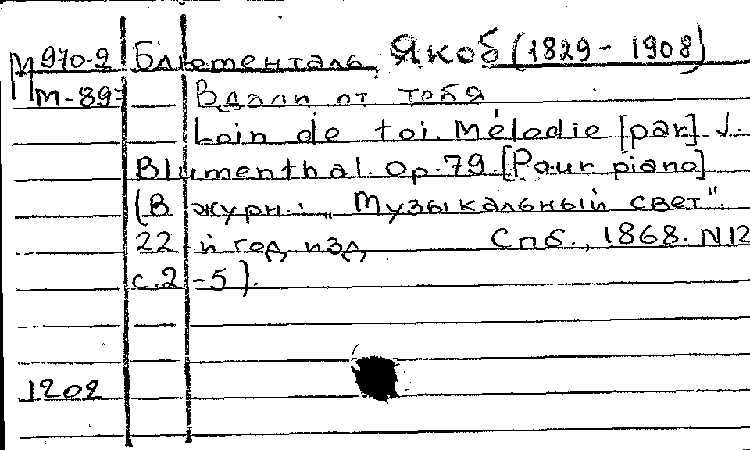 М 970-2 Блюменталь, Якоб (1829 - 1908)
М-897 Вдали от тебя
Loin de toi. Mélodie [par] J.
Blumenthal. Op. 79. [Pour piano]
(В журн.: „Музыкальный свет".
22 й год изд. Спб., 1868. N12
с. 2-5).
1202